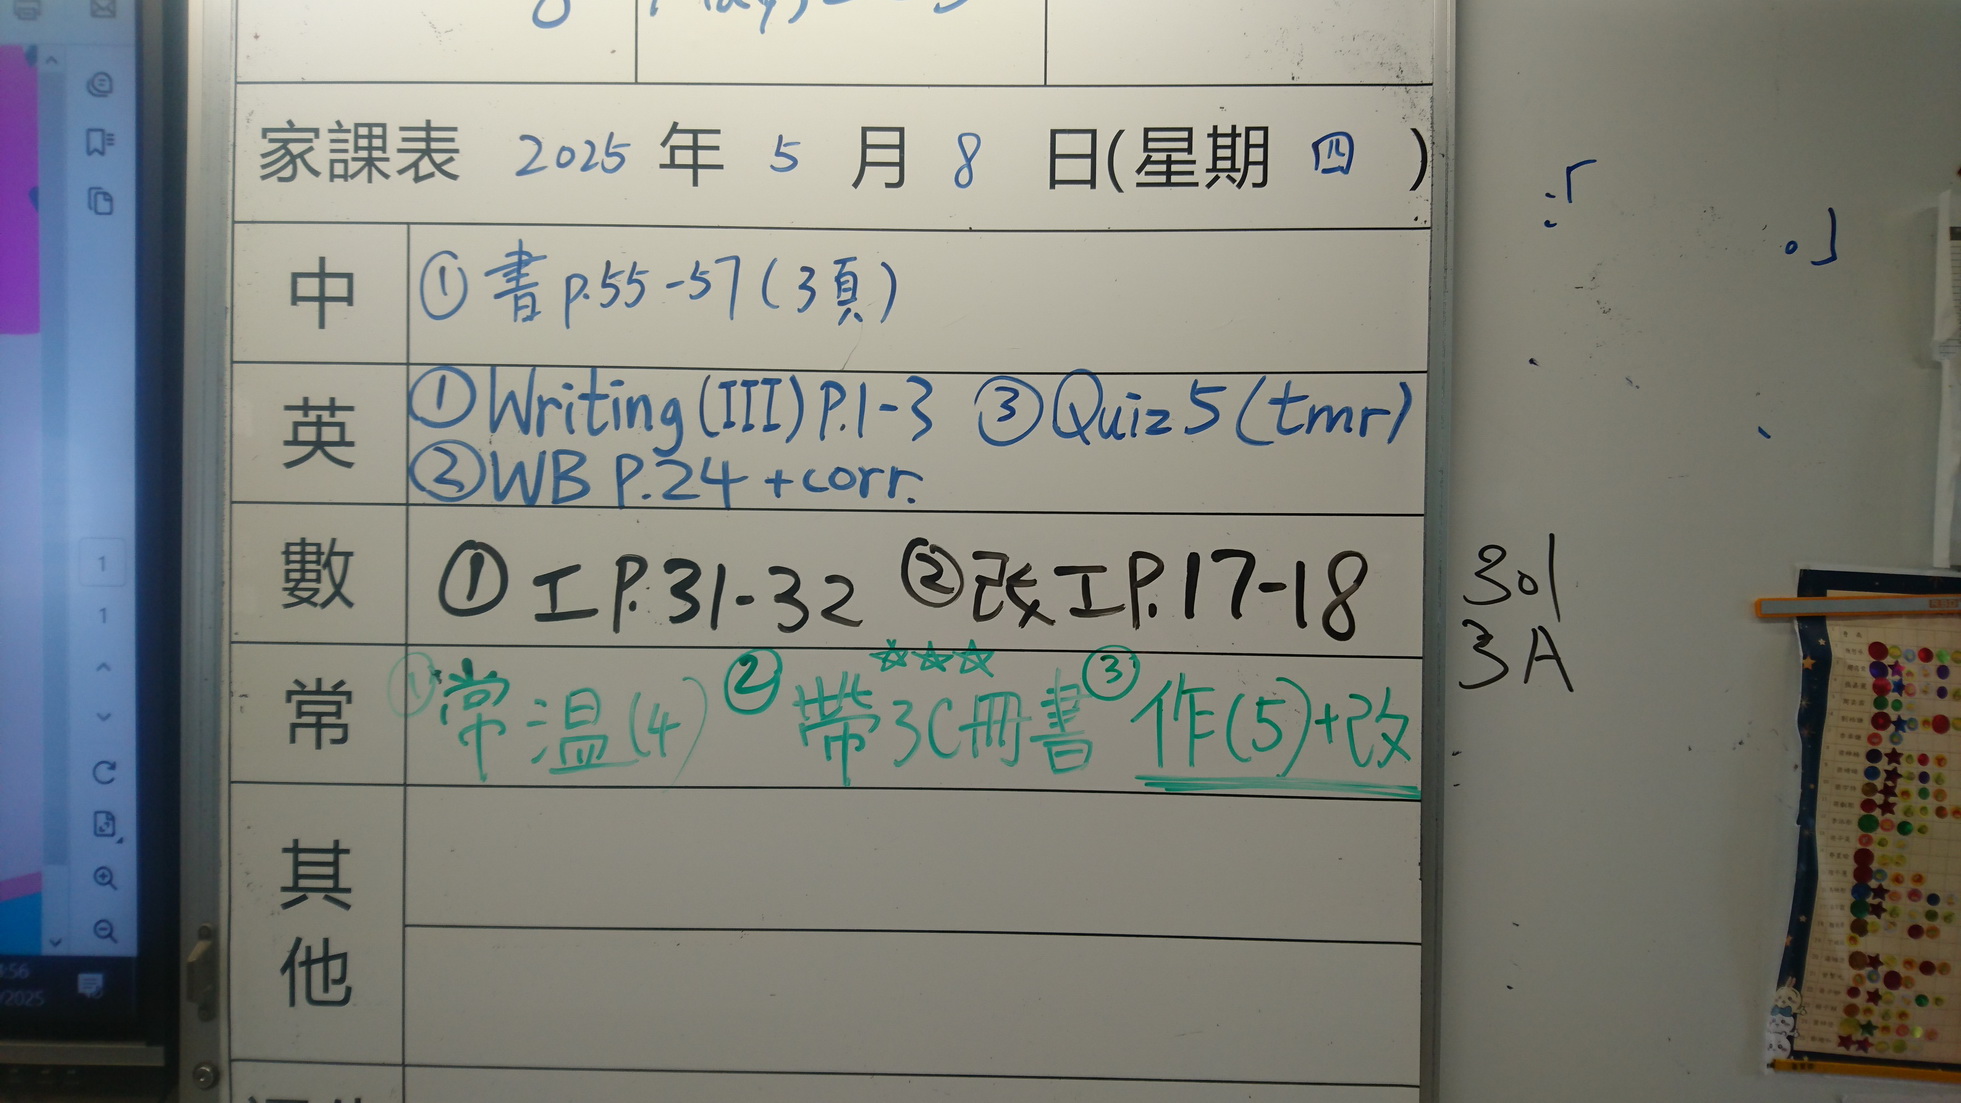 家課表 2025 年 5 月 8 日(星期 四 )
中 ① 書 p.55-57(3頁)
英 ① Writing(III) P.1-3 ③ Quiz 5 (tmr)
② WB P.24 +corr.
數 ① 工 P.31-32 ② 改工 P.17-18
☆☆☆
常 ① 常温(4) ② 帶3C冊書 ③ 作(5)+改
其他
301
3A
1
1
:56
/2025